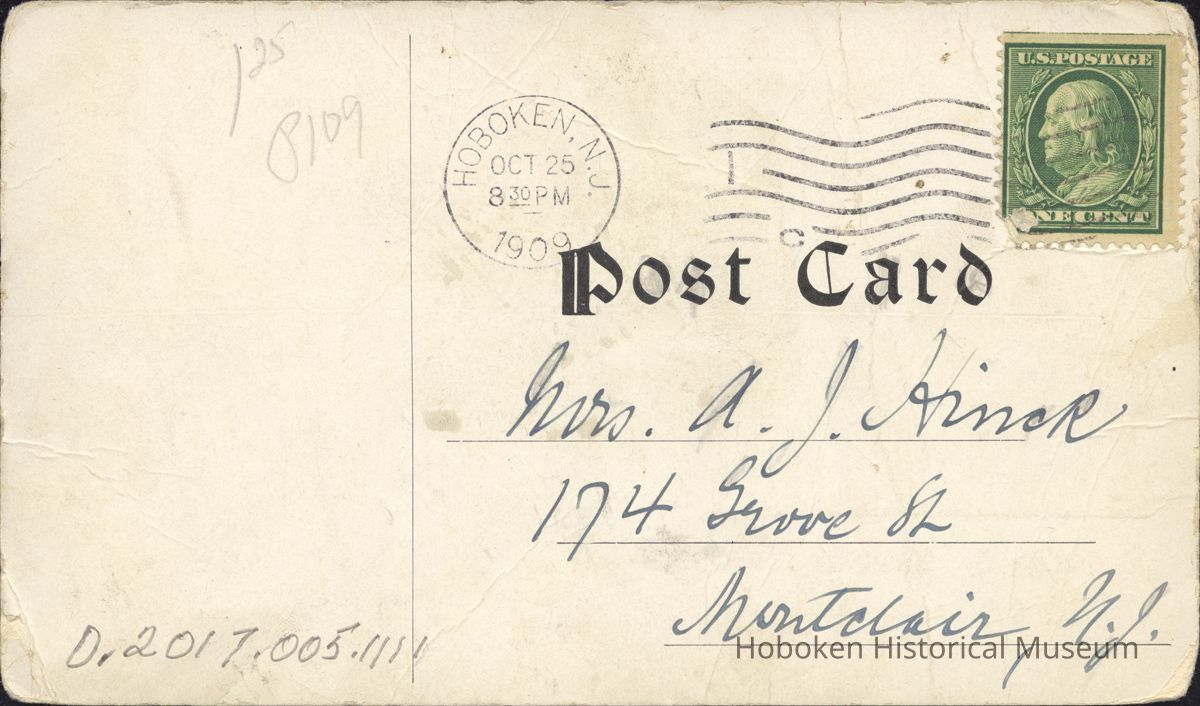 1 25
8109
HOBOKEN, N.J.
OCT 25
8 30 PM
1909
1
C
U.S. POSTAGE
ONE CENT
Post Card
Mrs. A. J. Hinck
174 Grove St
Montclair, N.J.
D.2017.005.1111
Hoboken Historical Museum